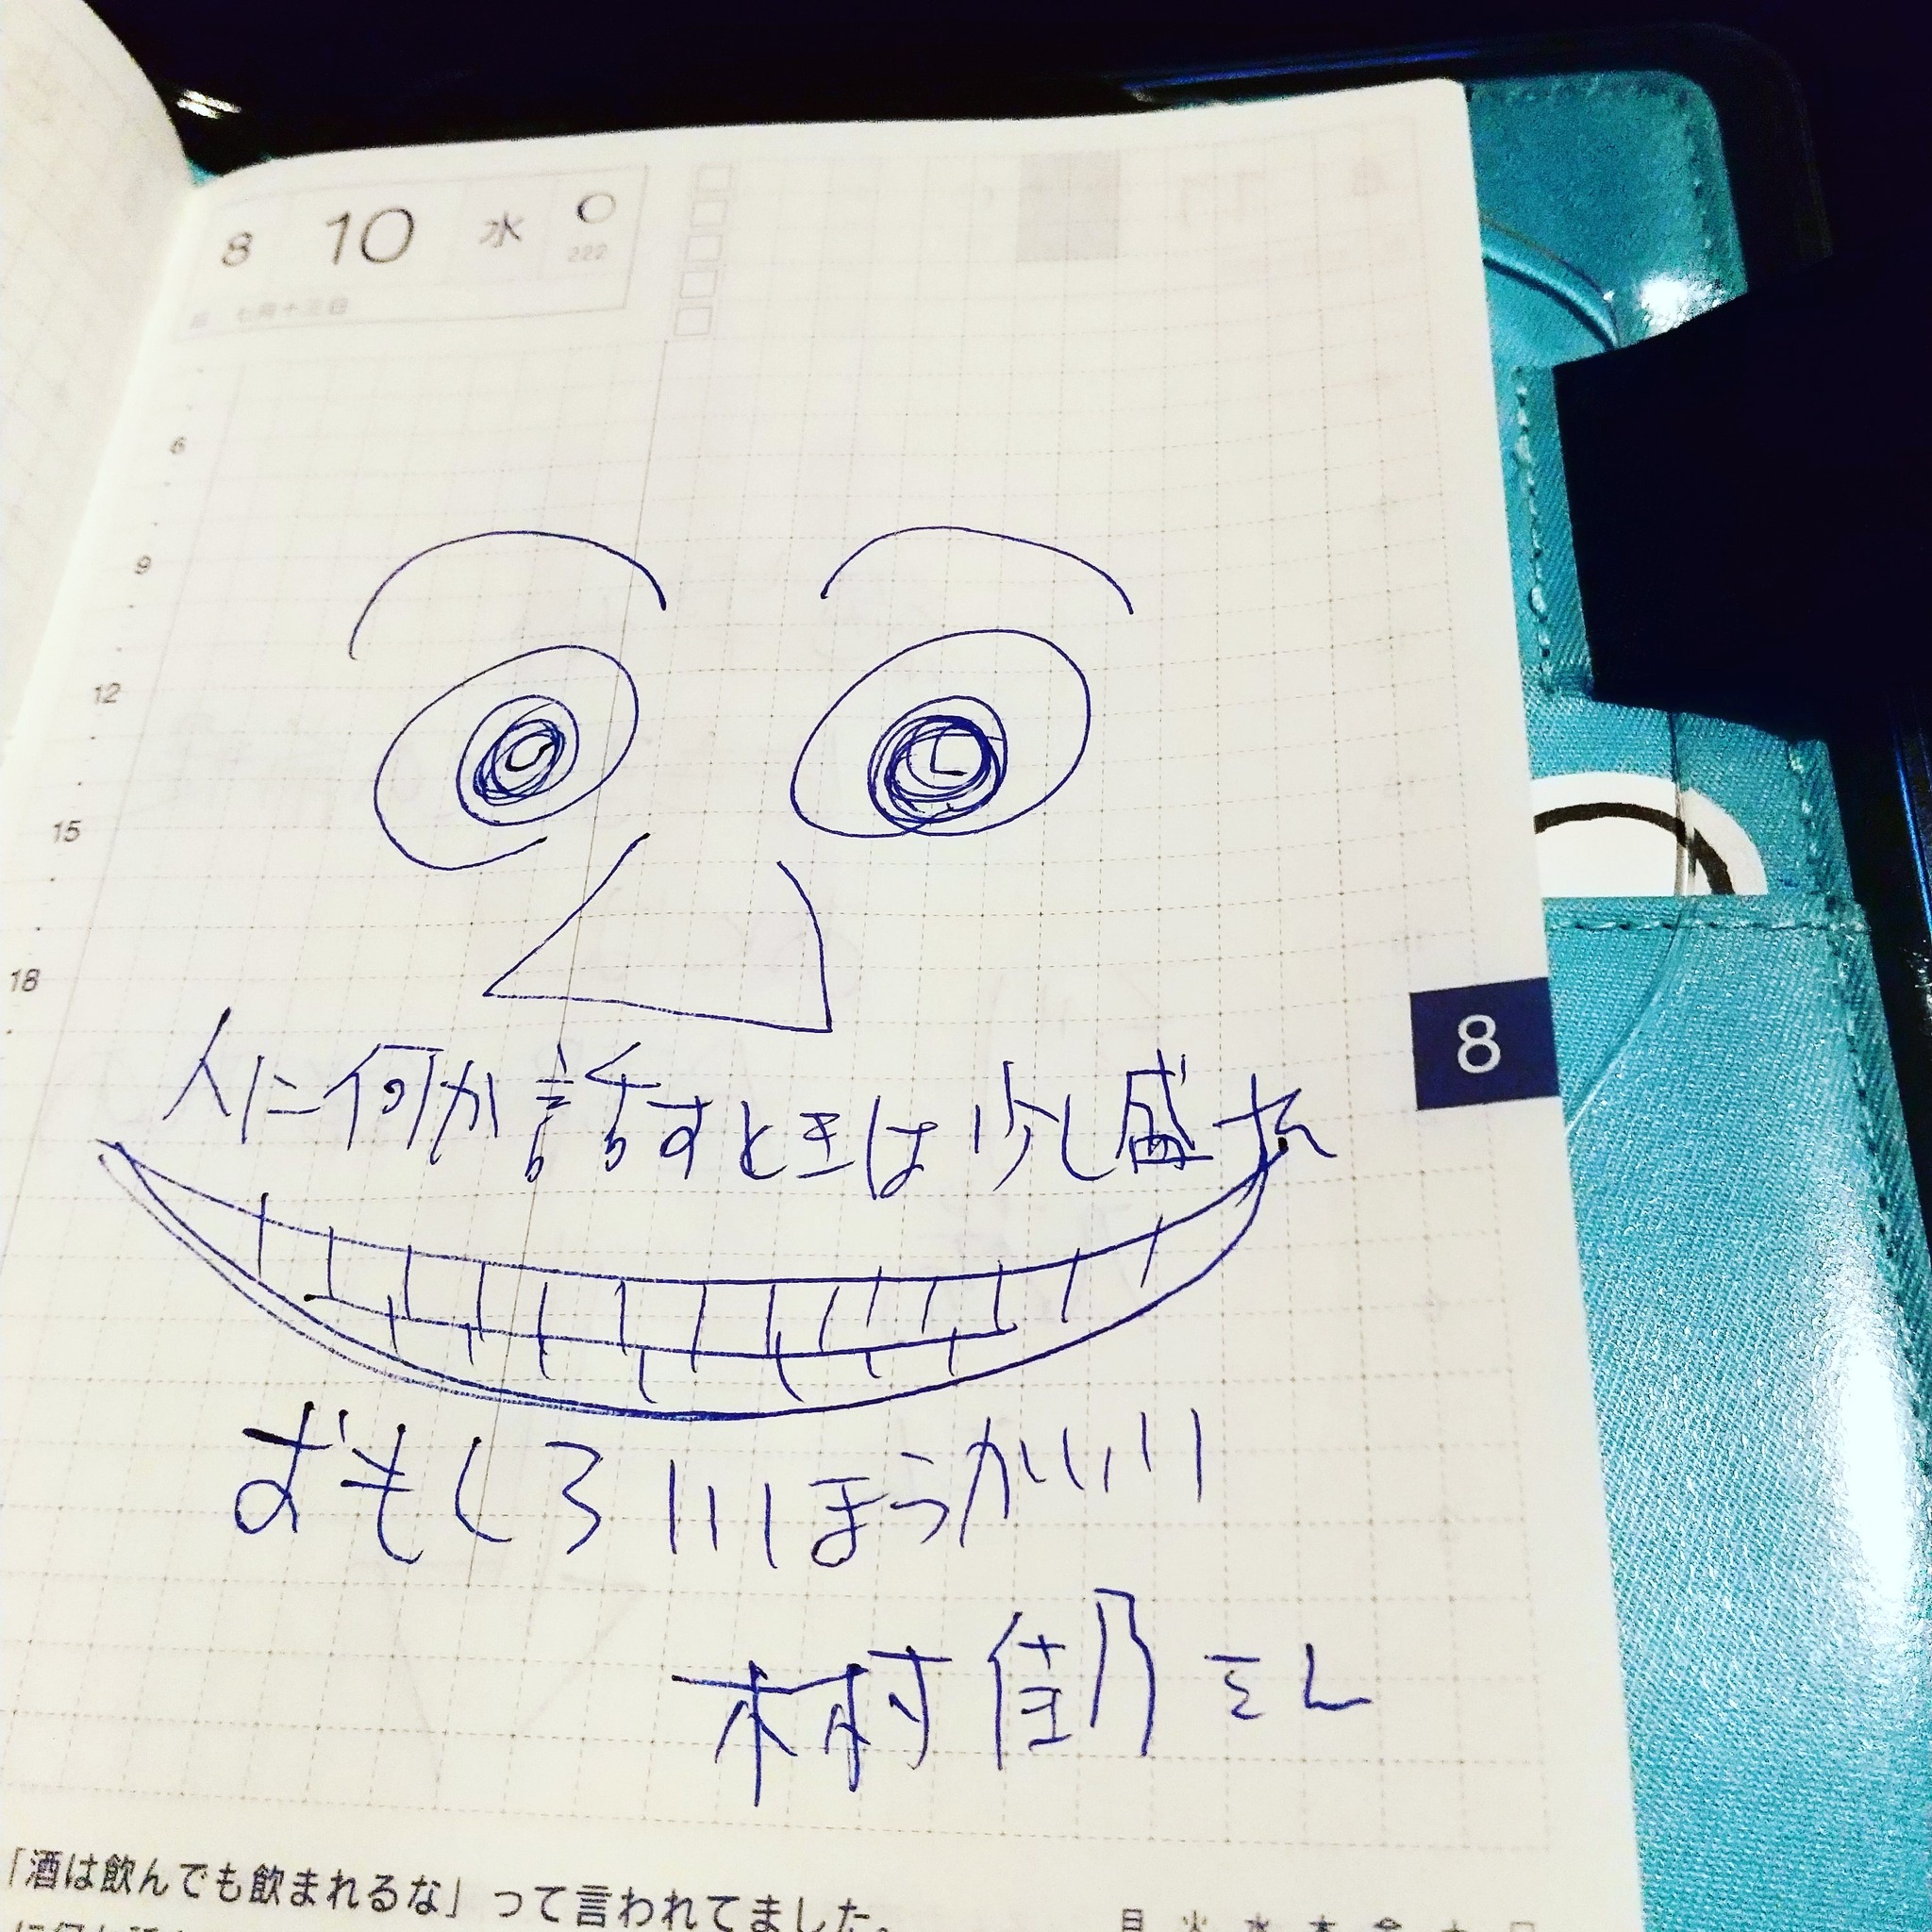 8 10 水 ○
222
七月十三日
6
9
12
15
18
8
人に何か話すときは少し盛れ
おもしろいほうがいい
木村佳乃さん
「酒は飲んでも飲まれるな」って言われてました。
月 火 水 木 金 土 日